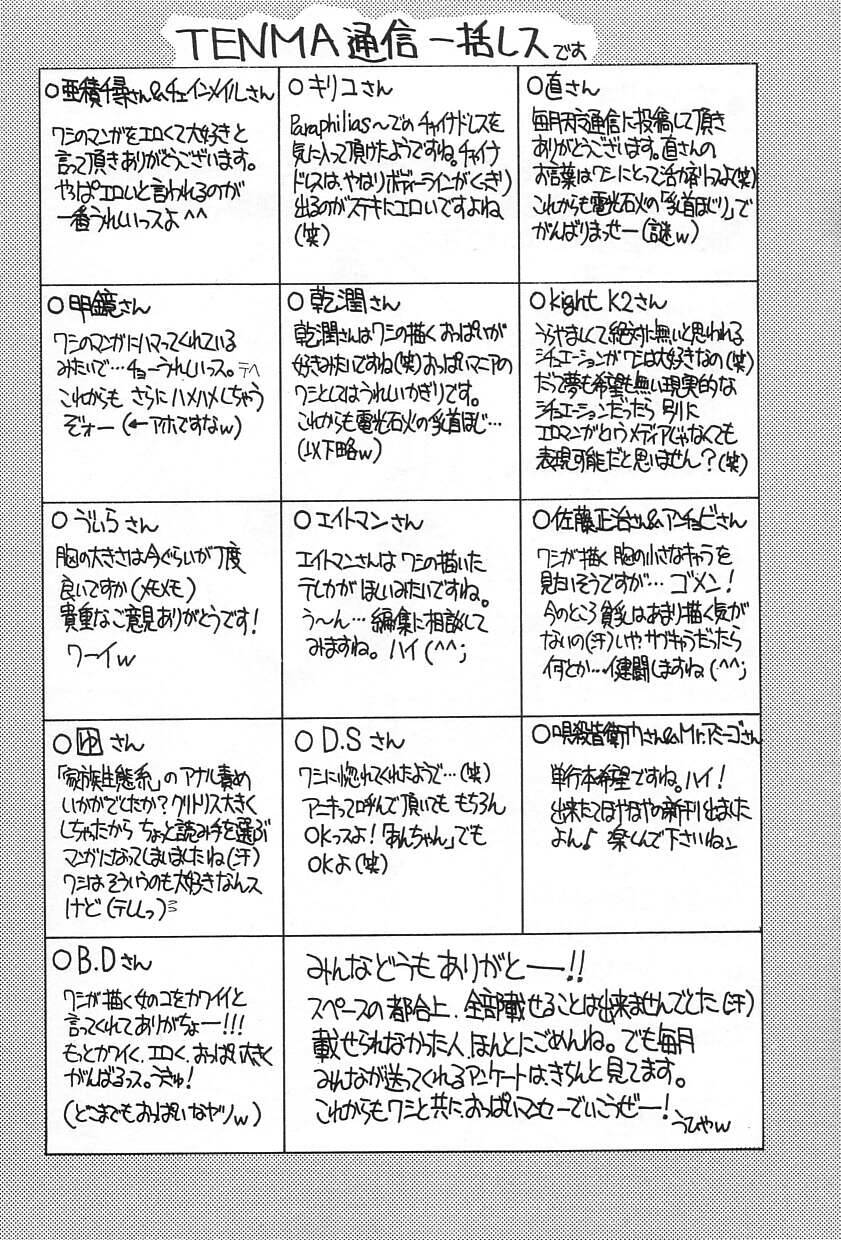 TENMA通信一括レスです
○亜積千尋さん&チェインメイルさん
ワシのマンガをエロくて大好きと
言って頂きありがとうございます。
やぱエロいと言われるのが
一番うれしいっスよ^^
○キリコさん
Paraphilias〜でのチャイナドレスを
気に入って頂けたようですね。チャイナ
ドレスは、やはりボディーラインがくっきり
出るのがステキにエロいですよね
(笑)
○直さん
毎月天通信に投稿して頂き
ありがとうございます。直さんの
お言葉はワシにとって活力剤っスよ(笑)
これからも電光石火の「乳首ほじり」で
がんばりまっせー(謎w)
○明鏡さん
ワシのマンガにハマってくれている
みたいで…チョーうれしいっス。テヘ
これからも さらにハメハメしちゃう
ぞォー(←アホですなw)
○乾潤さん
乾潤さんはワシの描くおっぱいが
好きみたいですね(笑)おっぱいマニアの
ワシとしてはうれしいかぎりです。
これからも電光石火の乳首ほじ…
(以下略w)
○kight K2さん
うらやましくて絶対に無いと思われる
シチュエーションがワシは大好きなの(笑)
だって夢も希望も無い現実的な
シチュエーションだったら 別に
エロマンガというメディアじゃなくても
表現可能だと思いません?(笑)
○づぃらさん
胸の大きさは今ぐらいが丁度
良いですか(メモメモ)
貴重なご意見ありがとうです!
ワーイw
○エイトマンさん
エイトマンさんは ワシの描いた
テレカがほしいみたいですね。
う〜ん…編集に相談して
みますね。ハイ(^^;
○佐藤正治さん&アンチョビさん
ワシが描く胸の小さなキャラを
見たいそうですが… ゴメン!
今のところ貧乳はあまり描く気が
ないの(汗)いや、サブキャラだったら
何とか…健闘しますね(^^;
○ゆさん
「家族生態系」のアナル責め
いかがでしたか?クリトリス大きく
しちゃたから ちょっと読み手を選ぶ
マンガになってしまいましたね(汗)
ワシはそういうのも大好きなんス
けど(テレっ)
○D.Sさん
ワシに惚れてくれたようで…(笑)
アニキって呼んで頂いても もちろん
OKっスよ!「あんちゃん」でも
OKよ(笑)
さん&Mr.アミーゴさん
単行本希望ですね。ハイ!
出来たてほやほやの新刊出ました
よん♪ 楽しんで下さいね
○B.Dさん
ワシが描く女のコをカワイイと
言ってくれてありがちょー!!!
もっとカワイく、エロく、おっぱい大きく
がんばるっス。うきゅ!
(どこまでもおっぱいなヤツw)
みんなどうもありがとーー!!
スペースの都合上、全部載せることは出来ませんでした(汗)
載せられなかった人、ほんとにごめんね。でも毎月
みんなが送ってくれるアンケートは、きちんと見てます。
これからもワシと共におっぱいマンセーでいこうぜー!
うひゃw